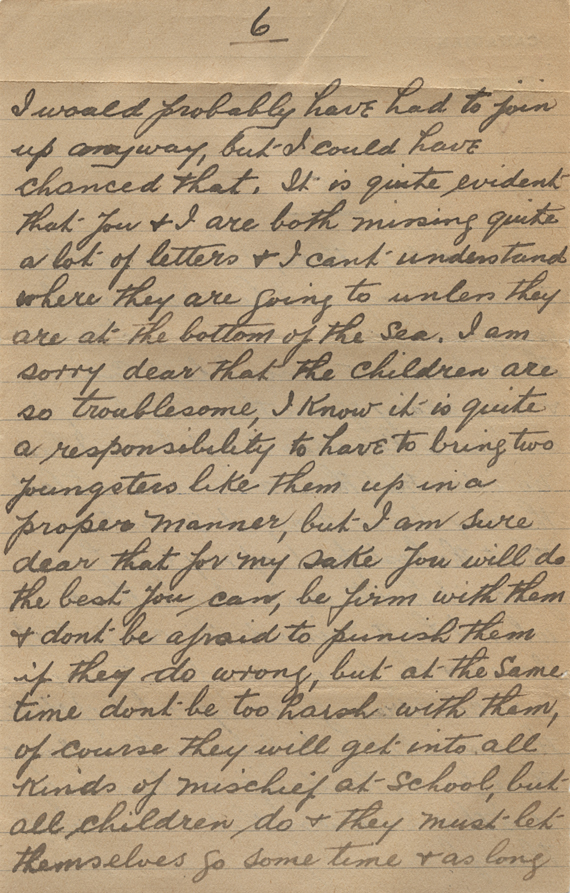 6
I would probably have had to join
up anyway, but I could have
chanced that. It is quite evident
that you & I are both missing quite
a lot of letters & I cant understand
where they are going to unless they
are at the bottom of the Sea. I am
sorry dear that the children are
so troublesome, I know it is quite
a responsibility to have to bring two
youngsters like them up in a
proper manner, but I am sure
dear that for my sake you will do
the best you can, be firm with them
& dont be afraid to punish them
if they do wrong, but at the same
time dont be too harsh with them,
of course they will get into all
kinds of mischief at School, but
all children do & they must let
themselves go some time & as long